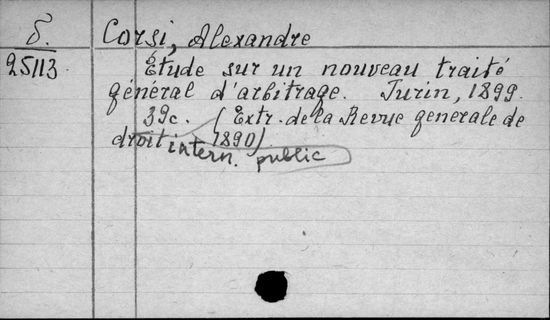 δ. Corsi, Alexandre
25113 Étude sur un nouveau traité
général d'arbitrage. Turin, 1899.
39c. (Extr. de la Revue generale de
droit 1890)
intern. public